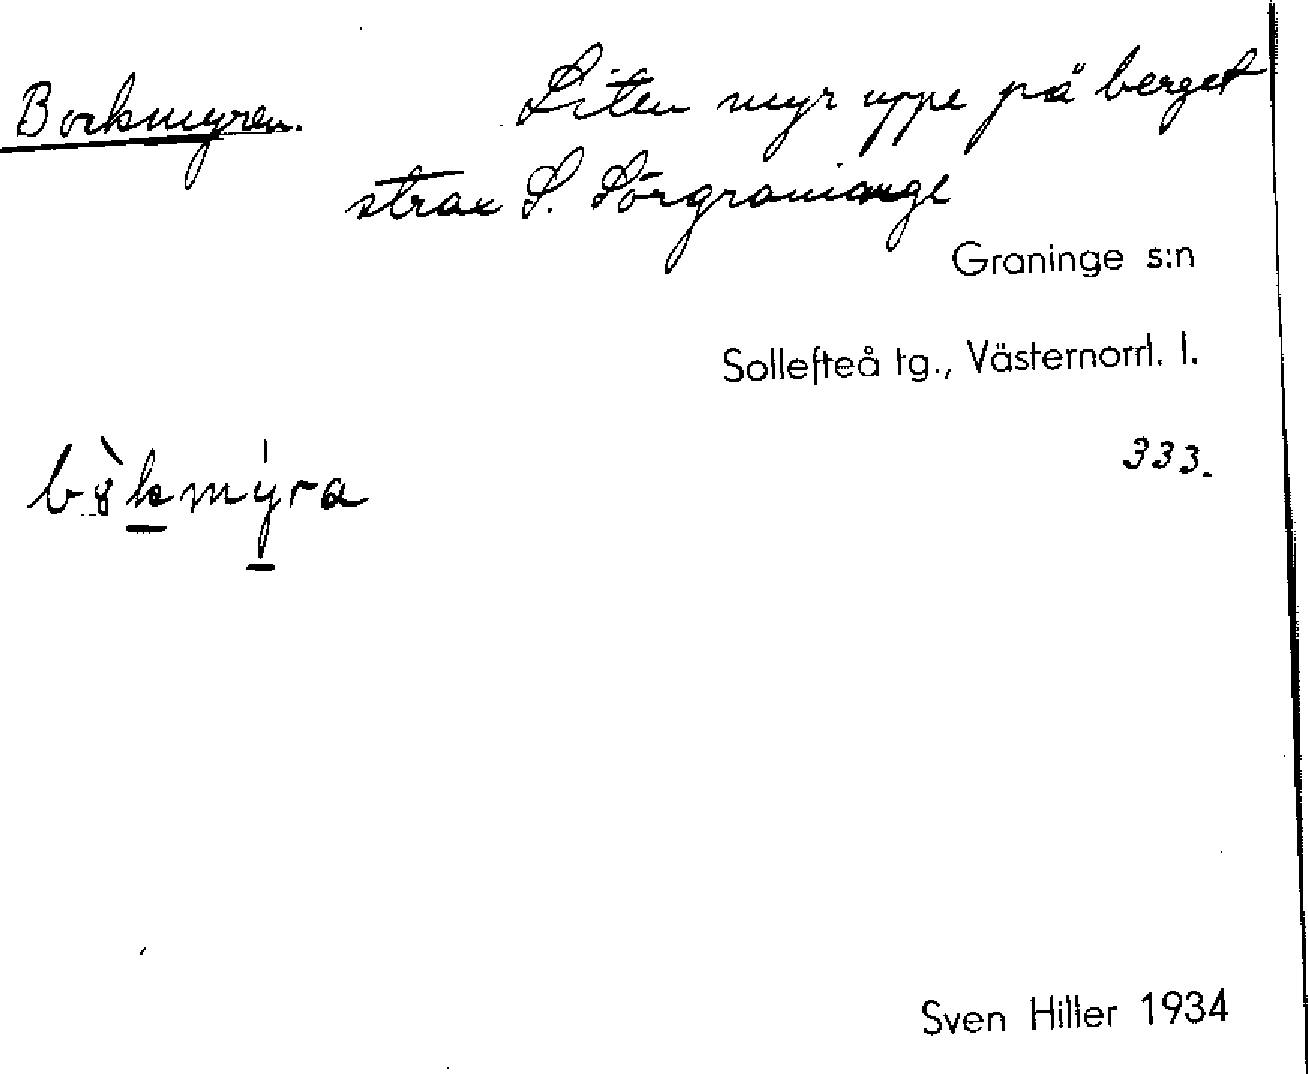 Borkmyren. Liten myr uppe på berget
strax S. Sörgraninge
Graninge s:n
Sollefteå tg., Västernorrl. l.
333.
Sven Hiller 1934